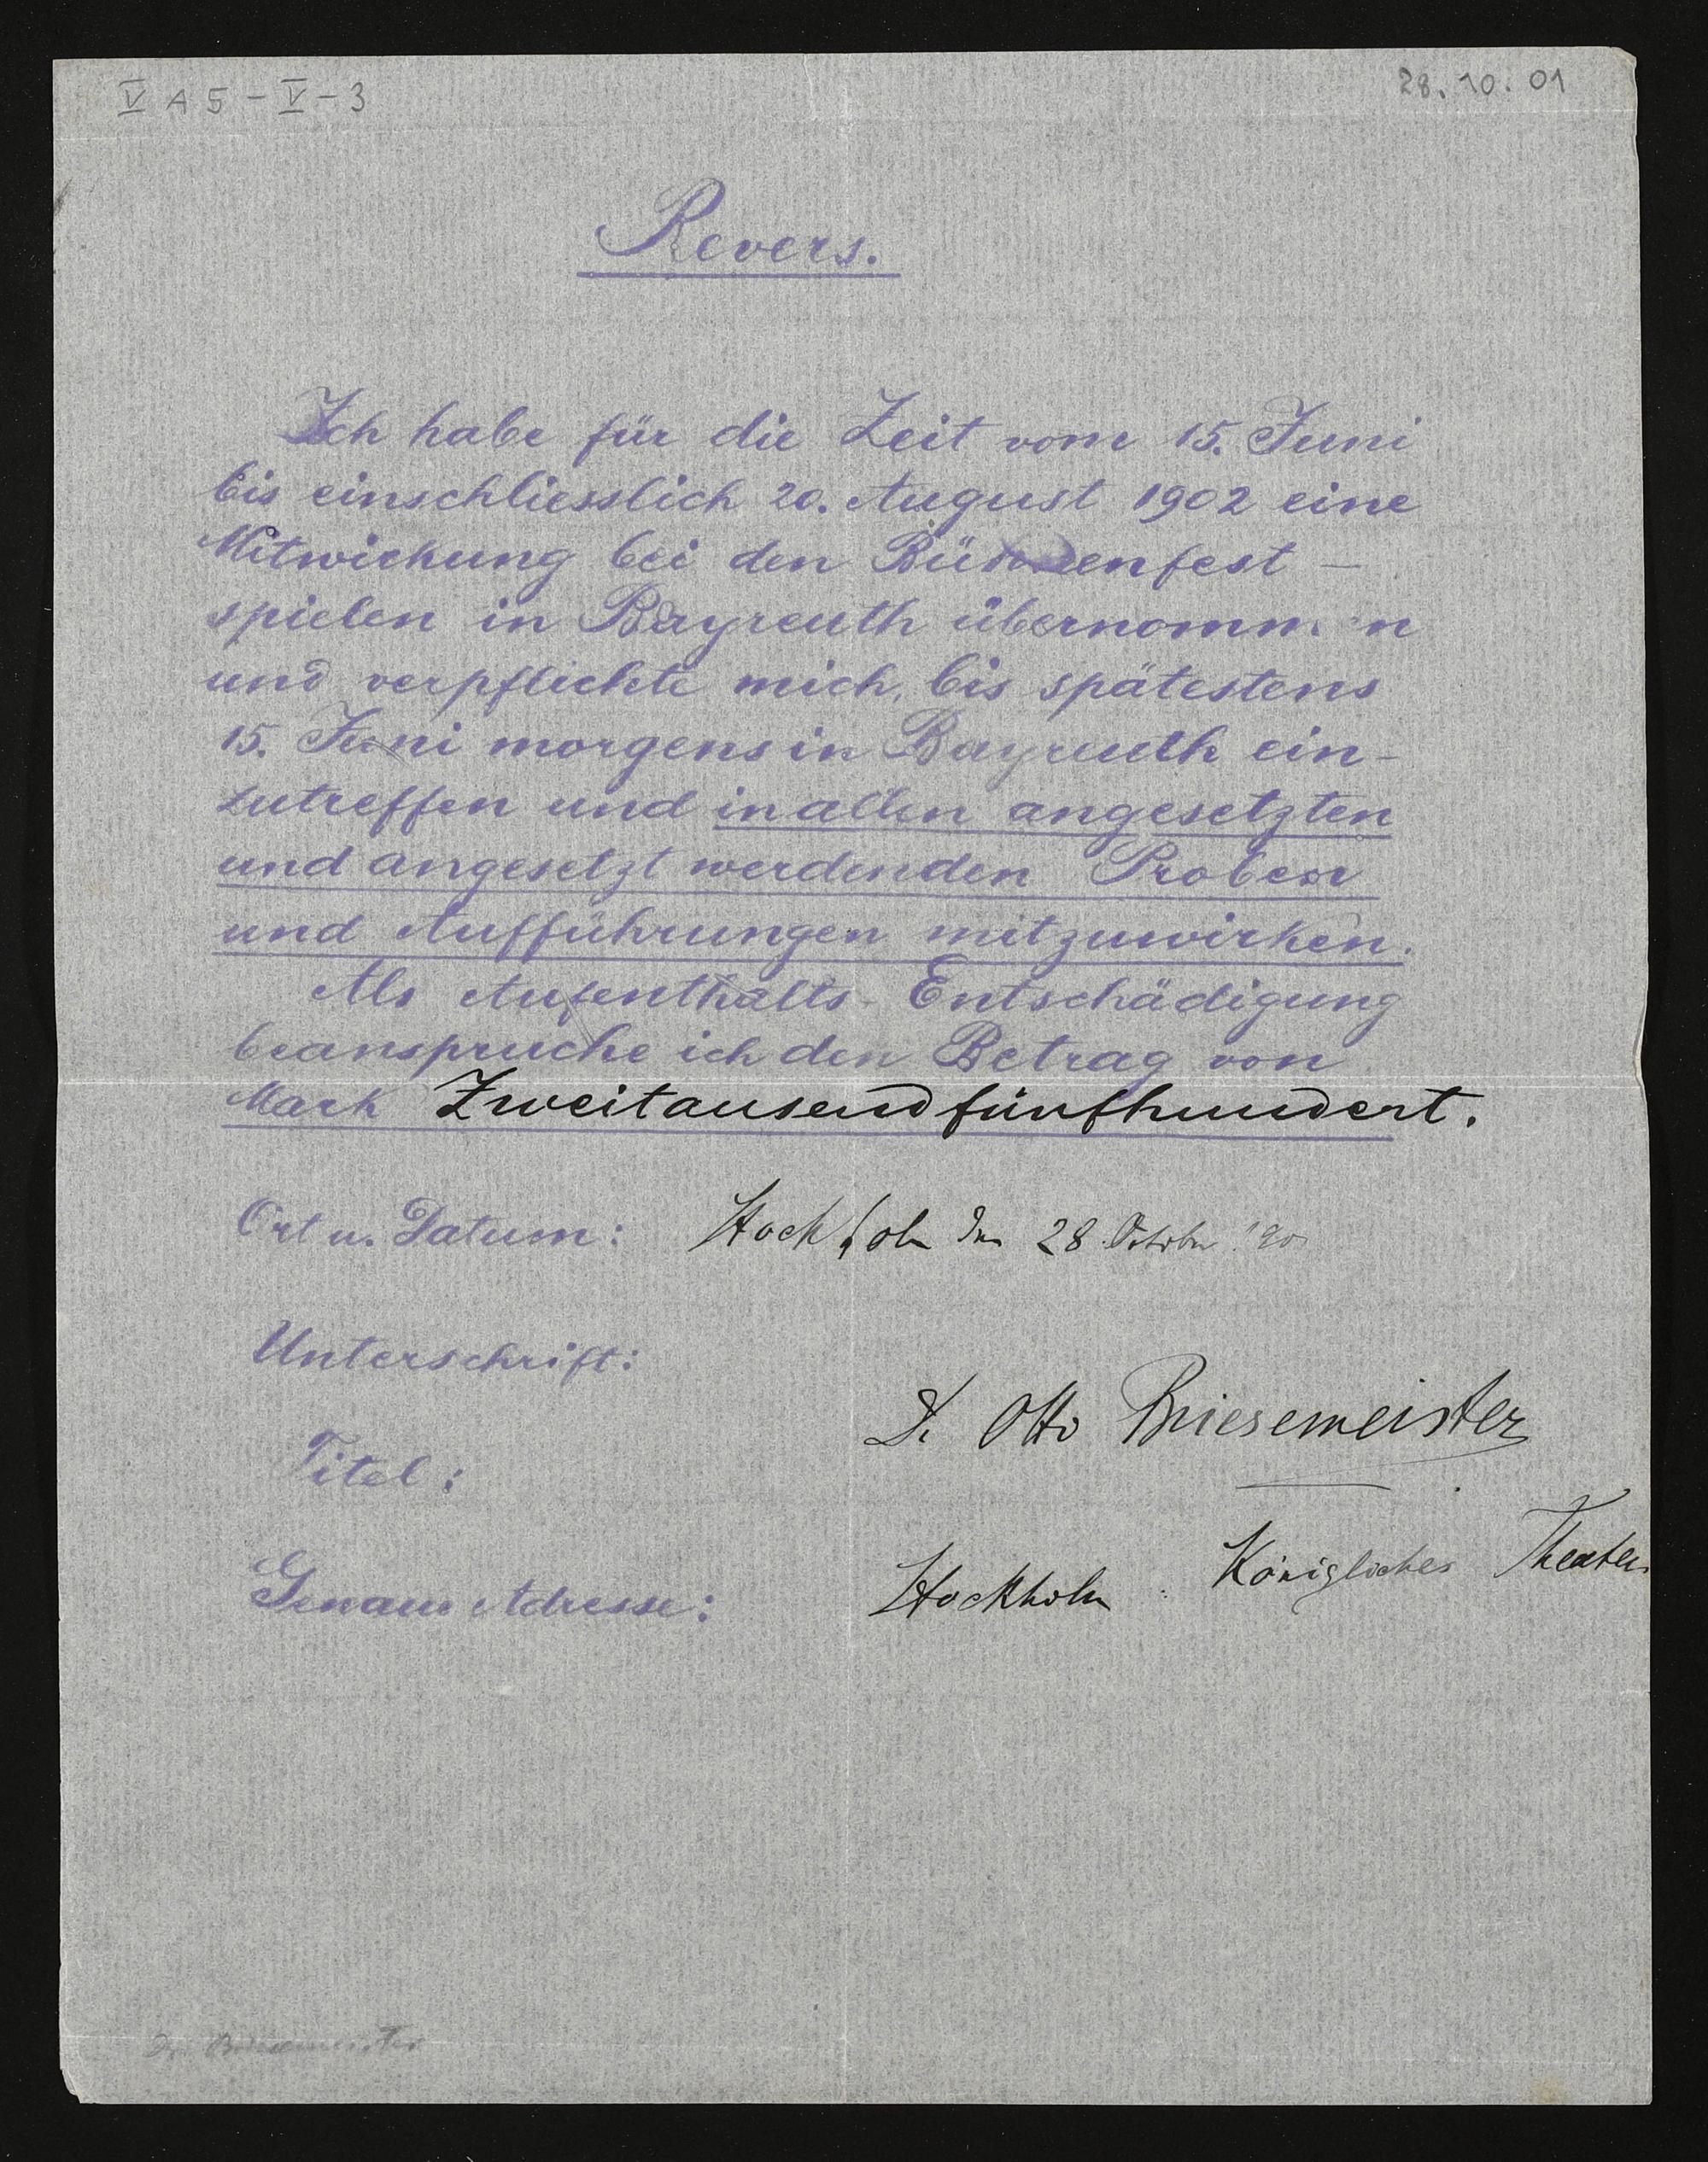 V A 5 - V - 3
28. 10. 01
Revers.
Ich habe für die Zeit vom 15. Juni
bis einschliesslich 20. August 1902 eine
Mitwirkung bei den Bühnenfest-
spielen in Bayreuth übernommen
und verpflichte mich, bis spätestens
15. Juni morgens in Bayreuth ein-
zutreffen und in allen angesetzten
und angesetzt werdenden Proben
und Aufführungen mitzuwirken.
Als Aufenthalts-Entschädigung
beanspruche ich den Betrag von
Mark Zweitausendfünfhundert.
Ort u. Datum: Stockholm den 28. October 190
Unterschrift:
Dr Otto Briesemeister
Titel:
Königliches Theater
Genaue Adresse: Stockholm
Dr. Briesemeister